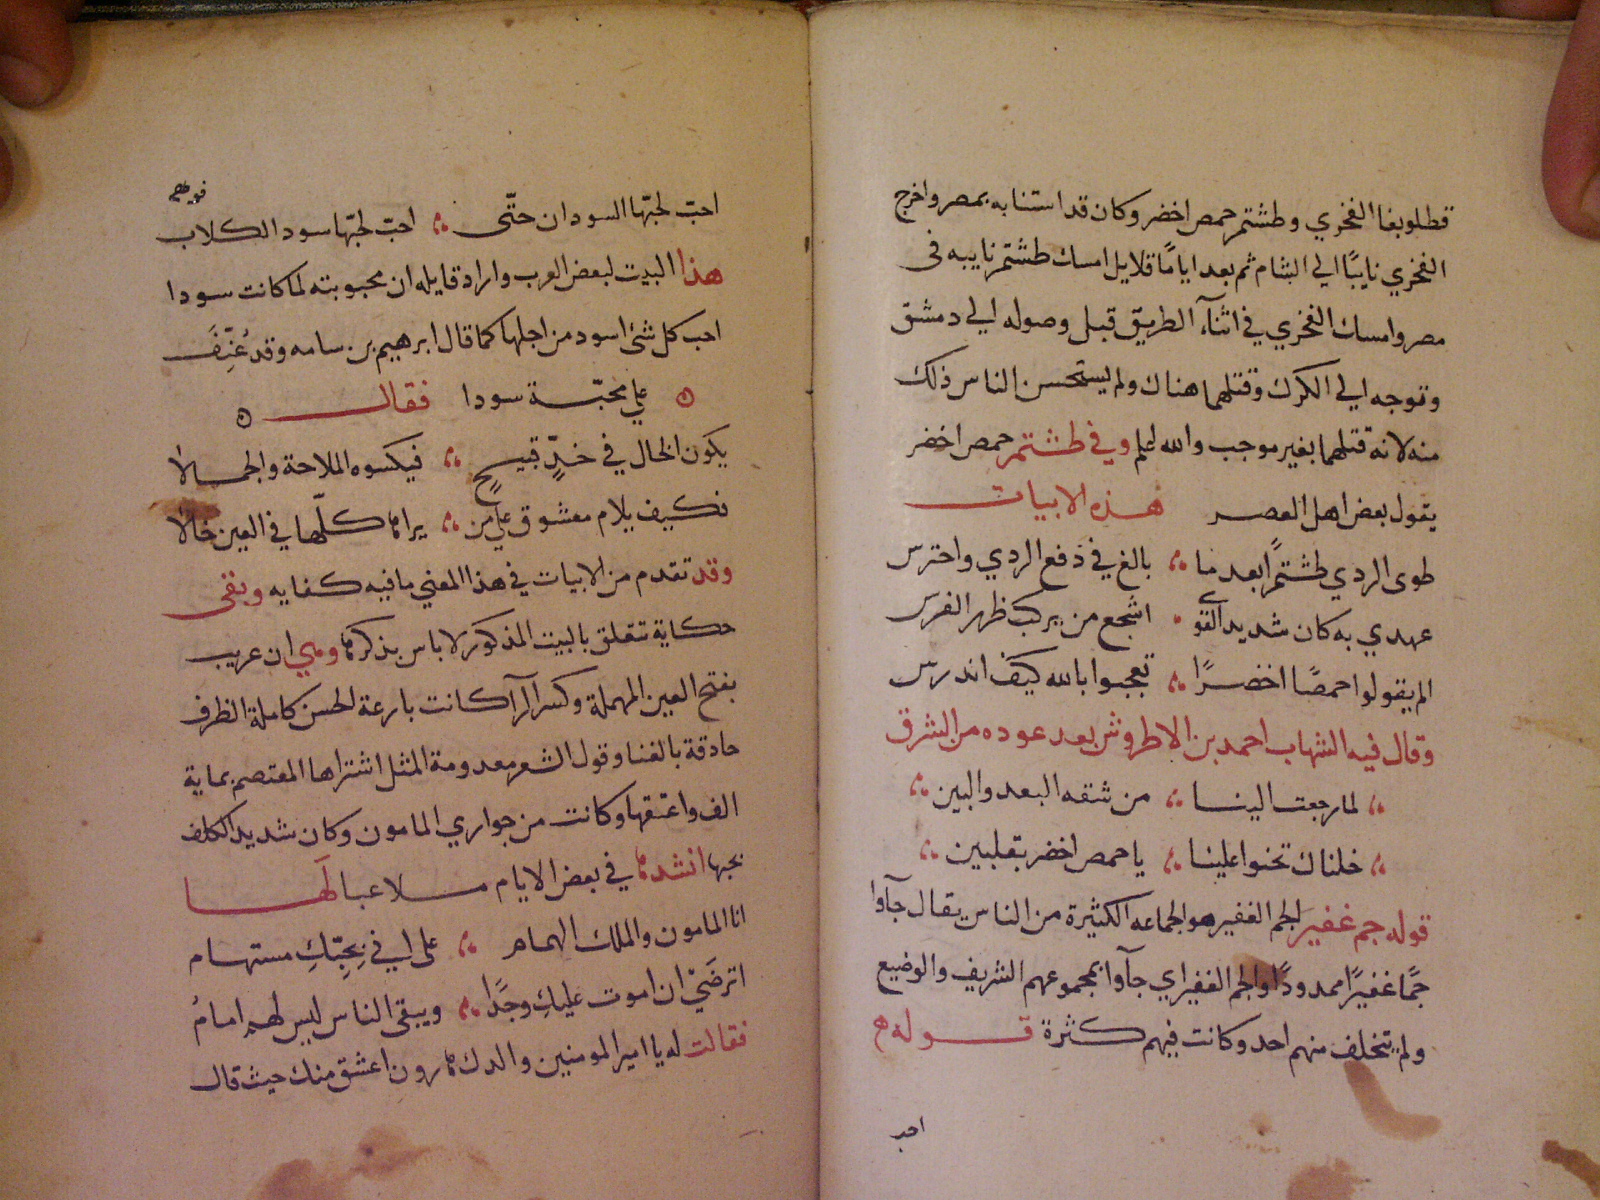 قطلوبغا الفخري وطشتمر حمص اخضر وكان قد استنابه بمصر واخرج
الفخري نايبًا الي الشام ثم بعد ايامًا قلايل امسك طشتمر نايبه فى
مصر وامسك الفخري في اثنآء الطريق قبل وصوله الي دمشق
وتوجه الي الكرك وقتلهما هناك ولم يستحسن الناس ذلك
منه لانه قتلهما بغير موجب والله اعلم وفي طشتمر حمص اخضر
يقول بعض اهل العصر هذه الابيات
طوى الردي طشتمرًا بعد ما بالغ في دفع الردي واحترس
عهدي به كان شديد القوي اشجع من يركب ظهر الفرس
الم يقولوا حمصًا اخضرًا تعجبوا بالله كيف اندرس
وقال فيه الشهاب احمد بن الاطروش بعد عوده من الشرق
لما رجعت الينا من شقه البعد والبين
خلناك تحنوا علينا يا حمص اخضر بقلبين
قوله جم غفير الجم الغفير هو الجماعه الكثيرة من الناس يقال جآوا
جمًا غفيرًا ممدودًا والجم الغفير اي جآوا بمجموعهم الشريف والوضيع
ولم يتخلف منهم احد وكانت فيهم كثرة قوله
احب
احبّ لحبّها السودان حتّى احبّ لحبّها سود الكلاب
هذا البيت لبعض العرب واراد قايله ان محبوبته لما كانت سودا
احب كل شئ اسود من اجلها كما قال ابرهيم بن سامه وقد عُنِّفَ
علي محبّة سودا فقال
يكون الخال في خدٍّ قبيحٍ فيكسوه الملاحة والجمالا
فكيف يلام معشوق علي من يراها كلّها في العين خالا
وقد تقدم من الابيات في هذا المعني ما فيه كفايه وبقى
حكاية تتعلق بالبيت المذكور لا باس بذكرها وهي ان عريب
بفتح العين المهملة وكسر الرآ كانت بارعة الحسن كاملة الظرف
حادقة بالغنا وقول الشعر معدومة المثل اشتراها المعتصم بماية
الف واعتقها وكانت من جواري المامون وكان شديد الكلف
بحبها انشدها في بعض الايام ملاعبا لها
انا المامون والملك الهمام على اني بحبّكِ مستهام
اترضَيْ ان اموت عليكِ وجدًا ويبقى الناس ليس لهم امامُ
فقالت له يا امير المومنين والدك هارون اعشق منك حيث قال